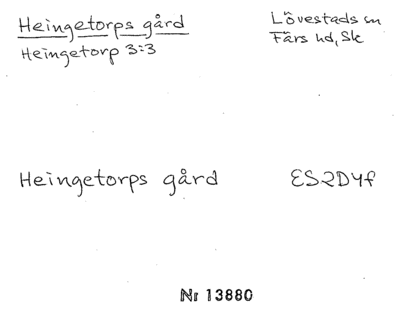 Heingetorps gård
Heingetorp 3:3
Lövestads sn
Färs hd, Sk
Heingetorps gård
ES2D4f
Nr 13880